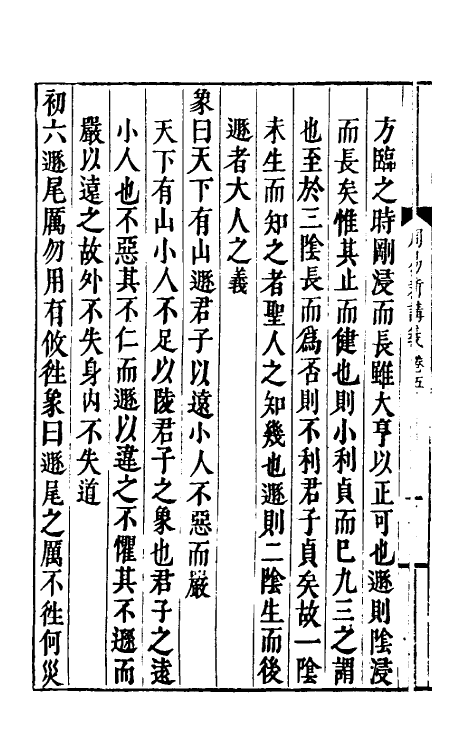 周易新講義 卷五
方臨之時剛浸而長雖大亨以正可也遯則陰浸
而長矣惟其止而健也則小利貞而巳九三之謂
也至於三陰長而爲否則不利君子貞矣故一陰
未生而知之者聖人之知幾也遯則二陰生而後
遯者大人之義
象曰天下有山遯君子以遠小人不惡而嚴
天下有山小人不足以陵君子之象也君子之遠
小人也不惡其不仁而遯以違之不懼其不遜而
嚴以遠之故外不失身内不失道
初六遯尾厲勿用有攸徃象曰遯尾之厲不徃何災